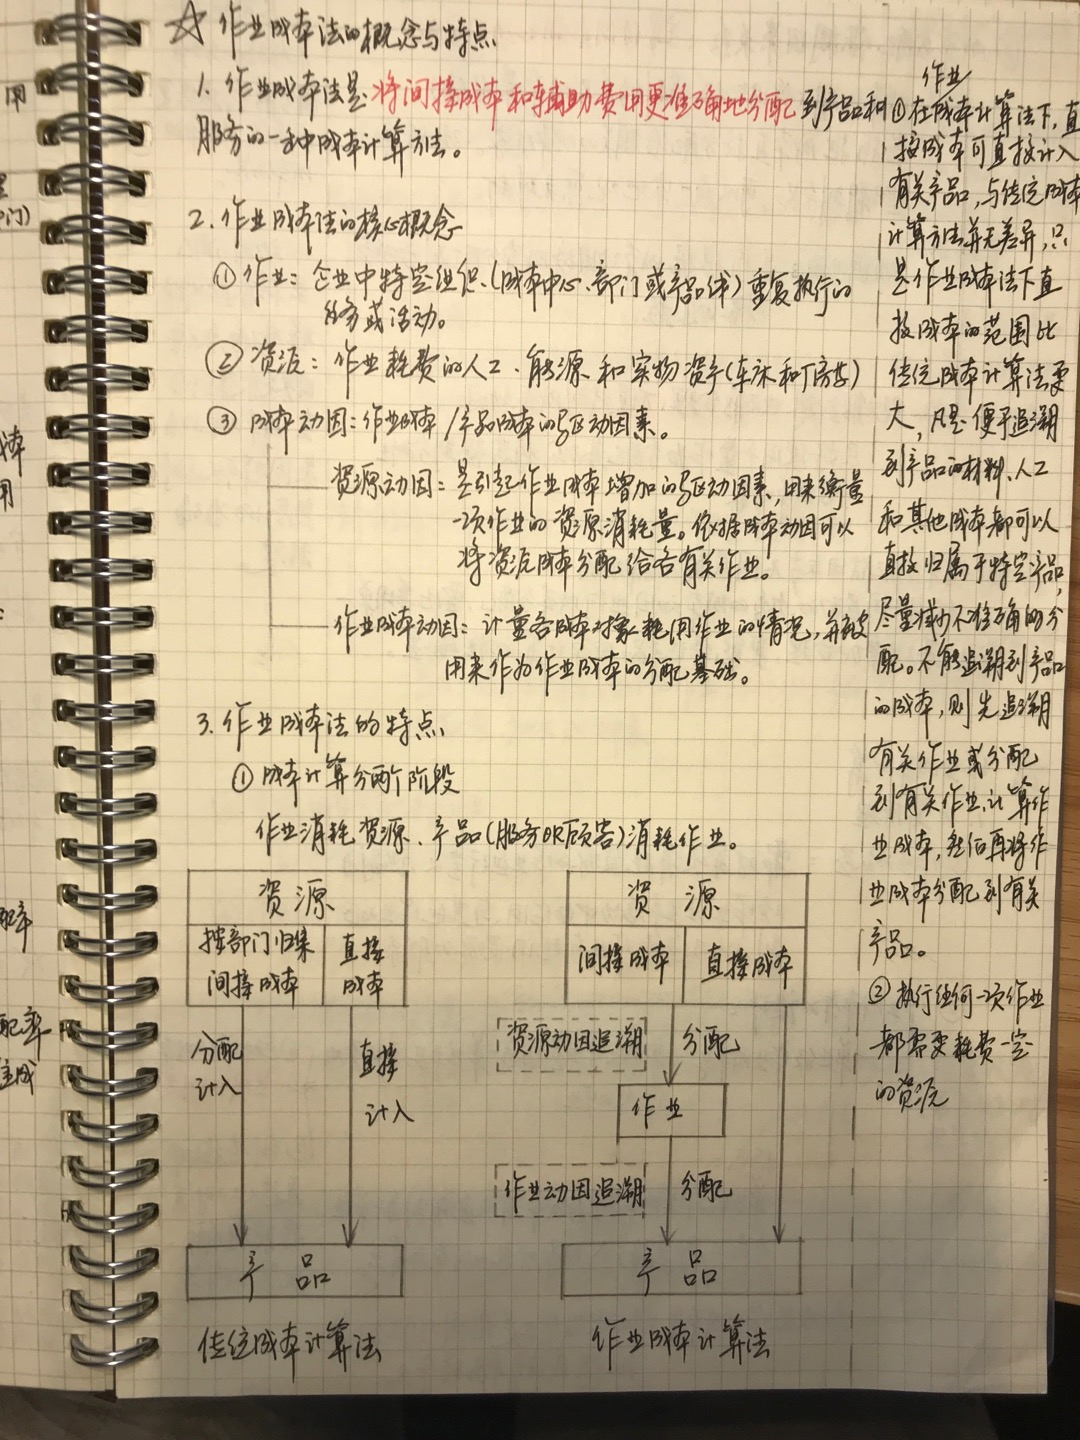 ☆ 作业成本法的概念与特点
1. 作业成本法是将间接成本和辅助费用更准确地分配到产品和
服务的一种成本计算方法。
2. 作业成本法的核心概念
① 作业：企业中特定组织（成本中心、部门或产品线）重复执行的
任务或活动。
② 资源：作业耗费的人工、能源和实物资产（车床和厂房等）
③ 成本动因：作业成本/产品成本的驱动因素。
资源动因：是引起作业成本增加的驱动因素，用来衡量
一项作业的资源消耗量。依据成本动因可以
将资源成本分配给各有关作业。
作业成本动因：计量各成本对象耗用作业的情况，并被
用来作为作业成本的分配基础。
3. 作业成本法的特点
① 成本计算分两个阶段
作业消耗资源、产品（服务OR顾客）消耗作业。
资源
按部门归集
间接成本
直接
成本
分配
计入
直接
计入
产品
传统成本计算法
资源
间接成本
直接成本
资源动因追溯
分配
作业
作业动因追溯
分配
产品
作业成本计算法
作业
① 在成本计算法下，直
接成本可直接计入
有关产品，与传统成本
计算方法并无差异，只
是作业成本法下直
接成本的范围比
传统成本计算法更
大，凡是便于追溯
到产品的材料、人工
和其他成本都可以
直接归属于特定产品，
尽量减少不准确的分
配。不能追溯到产品
的成本，则先追溯
有关作业或分配
到有关作业，计算作
业成本，然后再将作
业成本分配到有关
产品。
② 执行任何一项作业
都需要耗费一定
的资源
用
门)
本
用
配率
配率